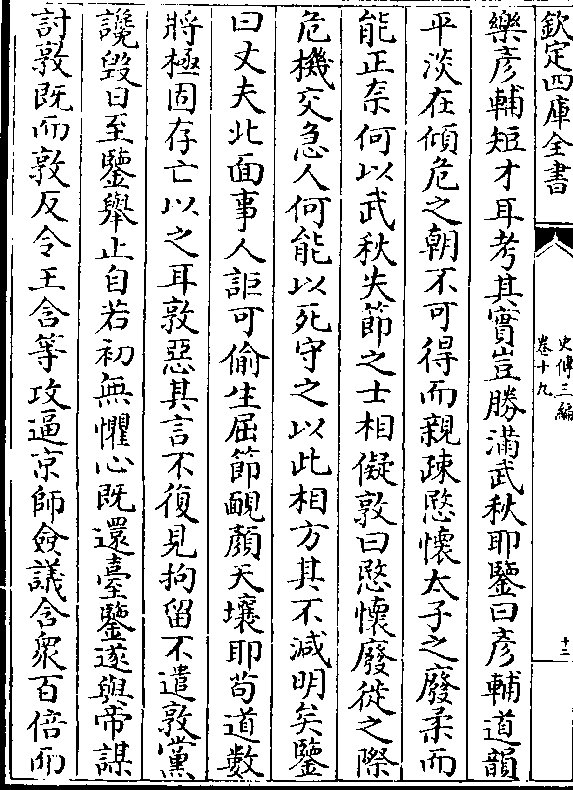 欽定四庫全書
史傳三編
卷十九
十三
樂彥輔短才耳考其實豈勝滿武秋耶鑒曰彥輔道韻
平淡在傾危之朝不可得而親疎愍懷太子之廢柔而
能正奈何以武秋失節之士相儗敦曰愍懷廢徙之際
危機交急人何能以死守之以此相方其不減明矣鑒
曰丈夫北面事人詎可偷生屈節靦顏天壤耶苟道數
將極固存亡以之耳敦惡其言不復見拘留不遣敦黨
讒毀日至鑒舉止自若初無懼心既還臺鑒遂與帝謀
討敦既而敦反令王含等攻逼京師僉議含衆百倍而